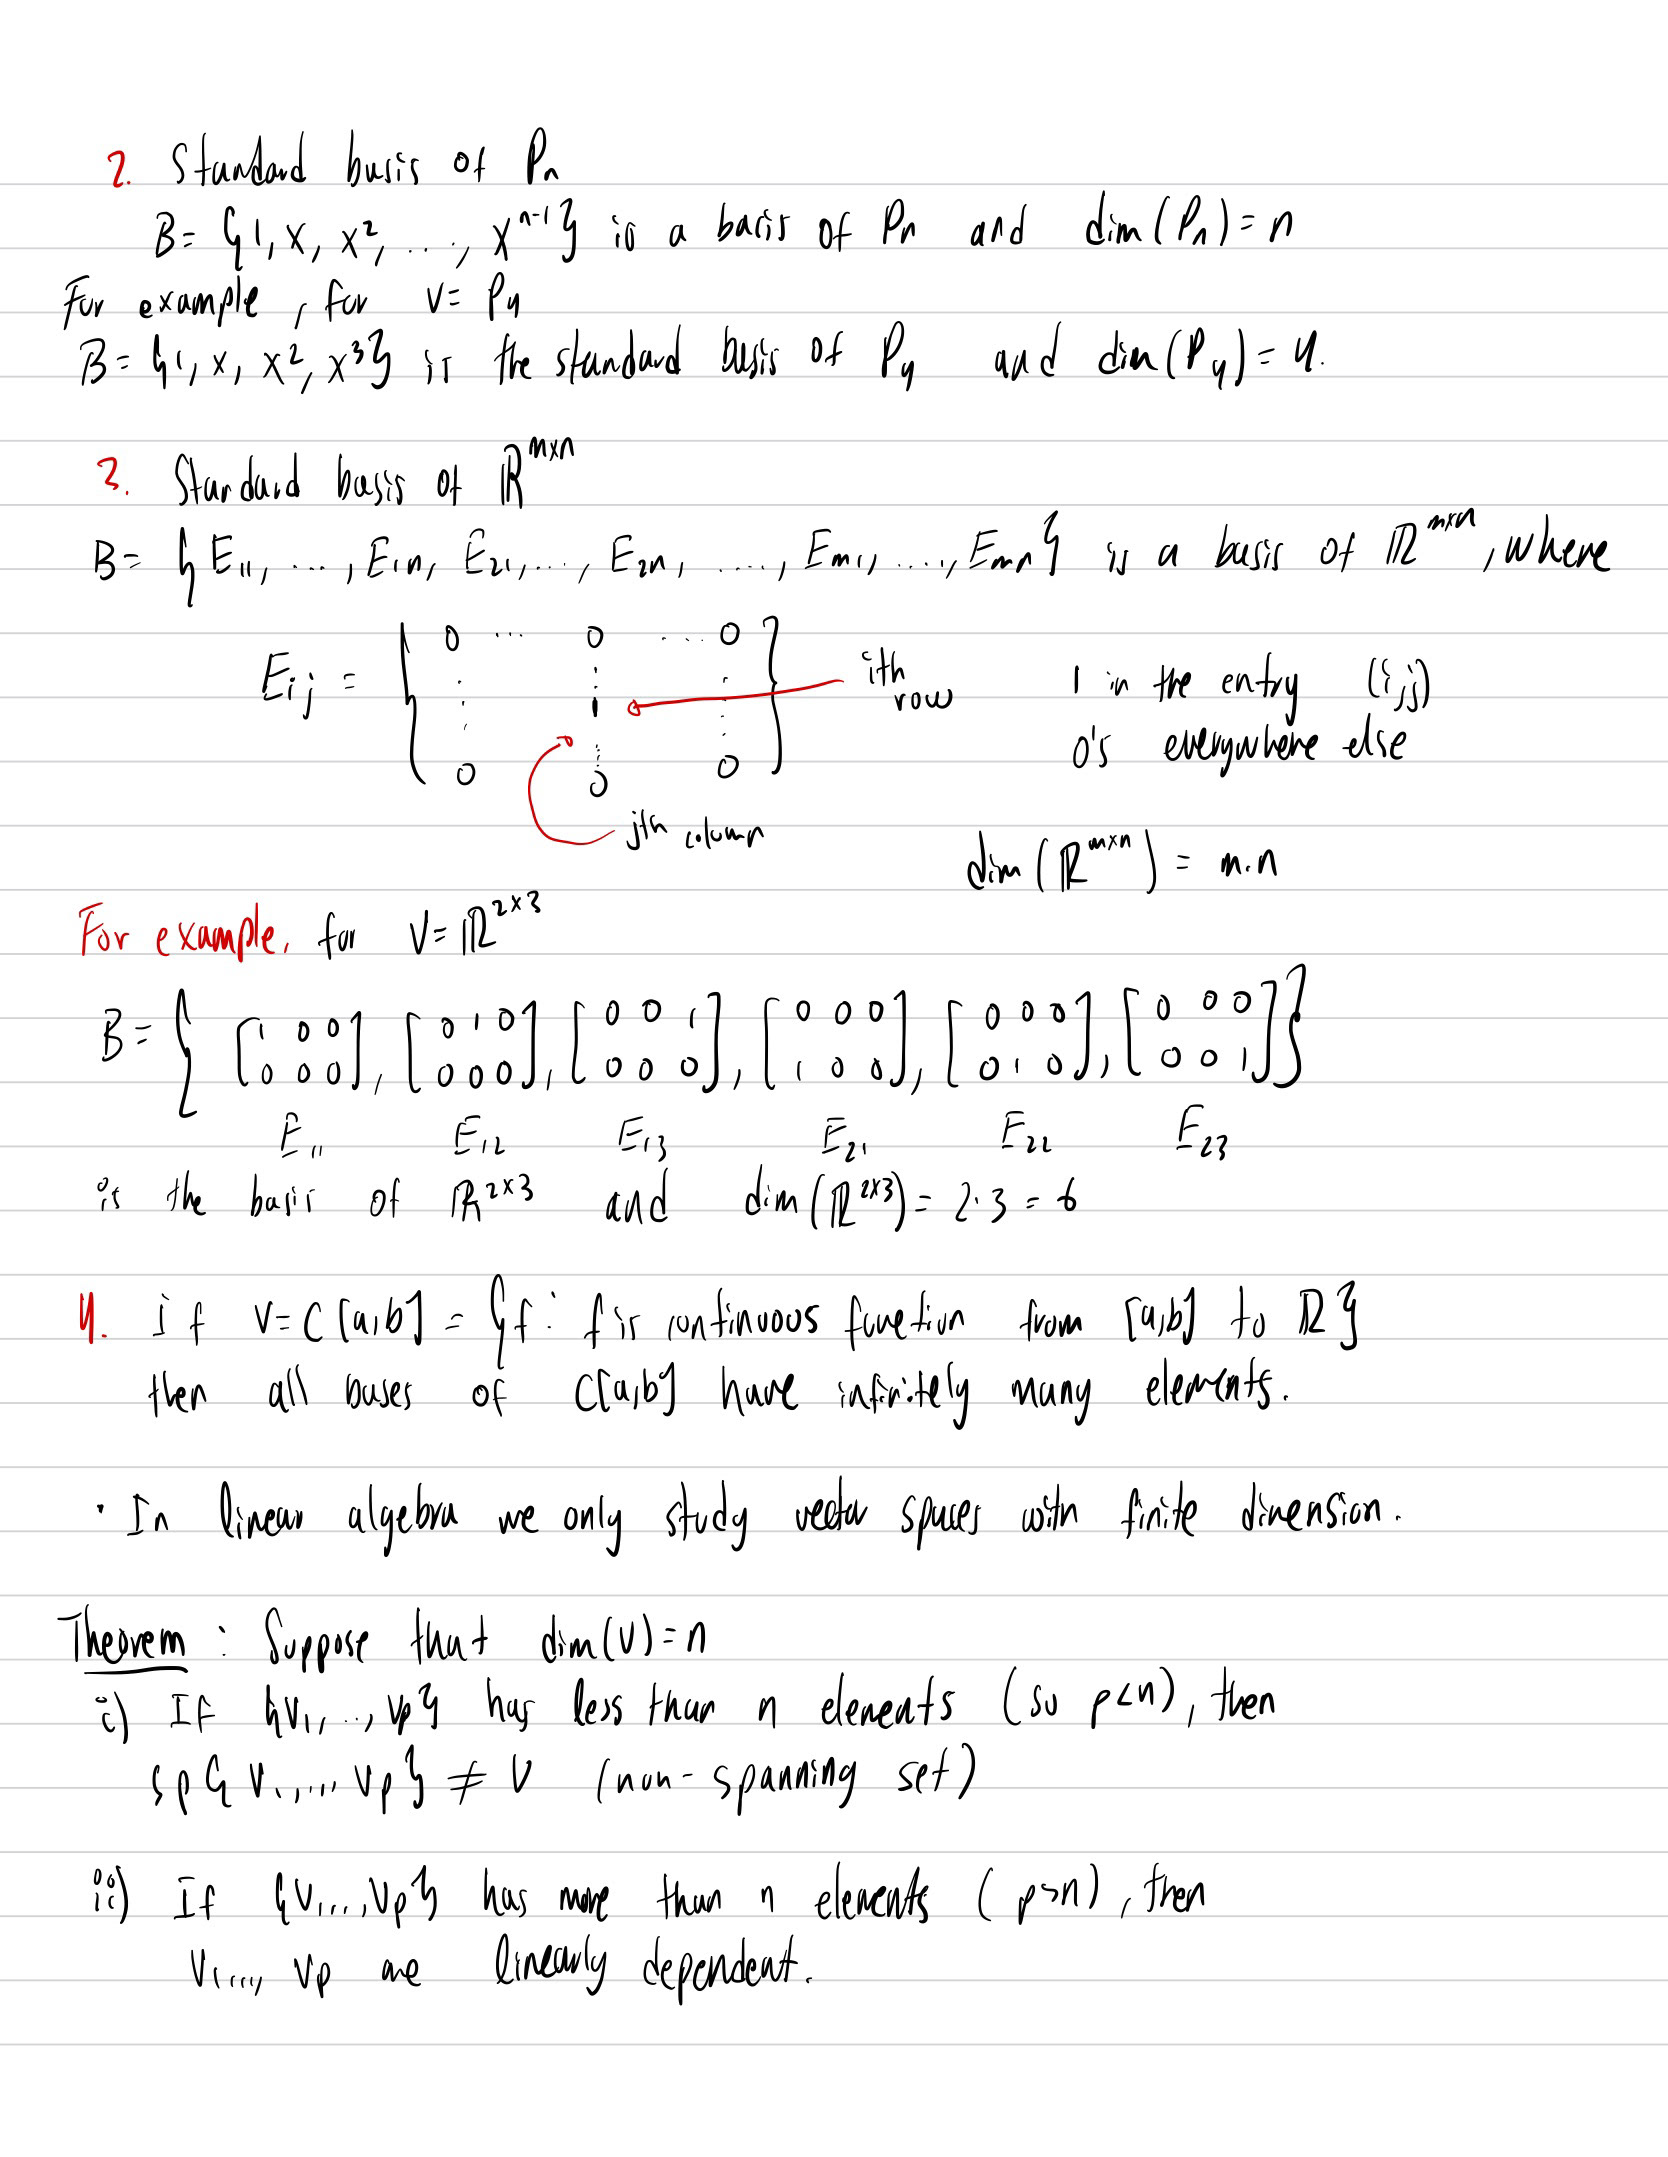 2. Standard basis of Pₙ
B = {1, x, x², ..., xⁿ⁻¹} is a basis of Pₙ and dim(Pₙ) = n
For example, for V = P₄
B = {1, x, x², x³} is the standard basis of P₄ and dim(P₄) = 4.
3. Standard basis of ℝᵐˣⁿ
B = {E₁₁, ..., E₁ₙ, E₂₁, ..., E₂ₙ, ...., Eₘ₁, ...., Eₘₙ} is a basis of ℝᵐˣⁿ, where
0 ... 0 ... 0
Eᵢⱼ = [ ⋮ 1 ⋮ ] ith row 1 in the entry (i,j)
0's everywhere else
0 0 0
jth column
dim(ℝᵐˣⁿ) = m.n
For example, for V = ℝ²ˣ³
B = { [1 0 0 , [0 1 0 , [0 0 1 , [0 0 0 , [0 0 0 , [0 0 0
0 0 0], 0 0 0], 0 0 0], 1 0 0], 0 1 0], 0 0 1] }
E₁₁ E₁₂ E₁₃ E₂₁ E₂₂ E₂₃
is the basis of ℝ²ˣ³ and dim(ℝ²ˣ³) = 2·3 = 6
4. if V = C[a,b] = {f : f is continuous function from [a,b] to ℝ}
then all bases of C[a,b] have infinitely many elements.
· In linear algebra we only study vector spaces with finite dimension.
Theorem : Suppose that dim(V) = n
i) If {v₁, ..., vₚ} has less than n elements (so p<n), then
sp{v₁, ..., vₚ} ≠ V (non-spanning set)
ii) If {v₁, ..., vₚ} has more than n elements (p>n), then
v₁, ..., vₚ are linearly dependent.